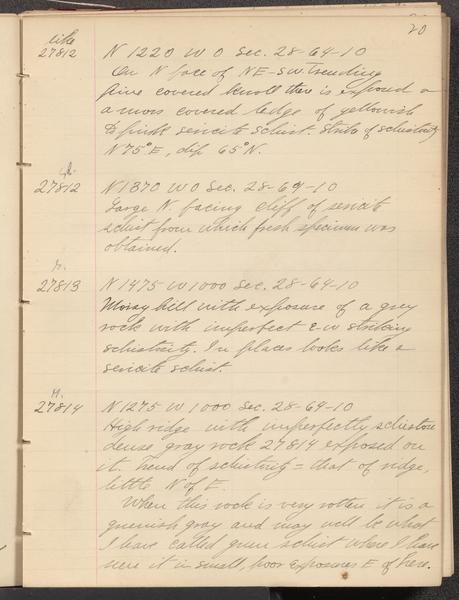 20
like
27812 N 1220 W 0 Sec. 28-64-10
On N face of NE-SW trending
pine covered knoll there is exposed a
a moss covered ledge of yellowish
to pinkish sericite schist. Strike of schistosity
N75°E, dip 65°N.
27812 N 1370 W 0 Sec. 28-64-10
Large N. facing cliff of sericite
schist from which fresh specimen was
obtained.
27813 N 1475 W 1000 Sec. 28-64-10
Mossy hill with exposure of a grey
rock with imperfect E-W striking
schistosity. In places looks like a
sericite schist.
27814 N 1275 W 1000 Sec. 28-64-10
High ridge with imperfectly schistose
dense gray rock 27814 exposed on
it. Trend of schistosity = that of ridge,
little N of E.
When this rock is very rotten it is a
greenish gray and may well be what
I have called green schist where I have
seen it in small, poor exposures E of here.